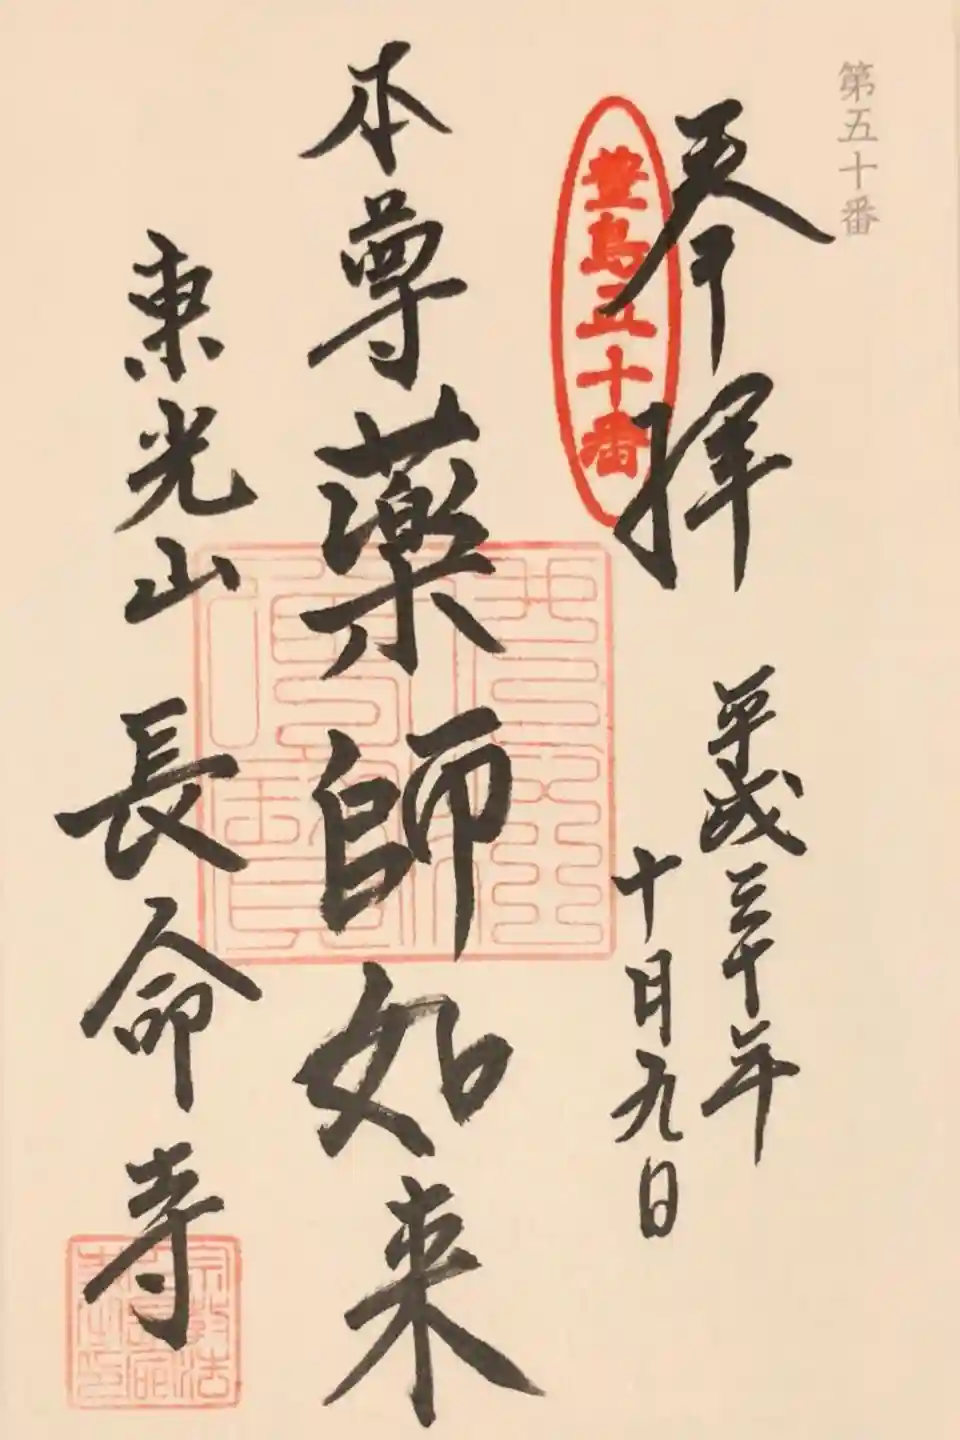 第五十番
奉拝
豊島五十番
平成三十年
十月九日
本尊薬師如来
東光山 長命寺